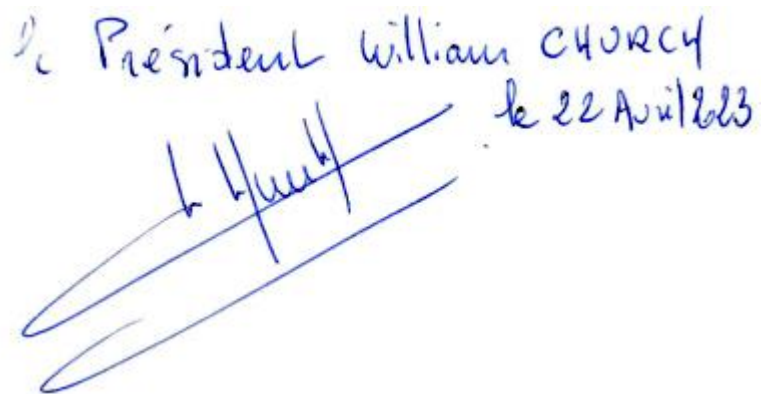 Le Président William CHURCH
le 22 Avril 2023